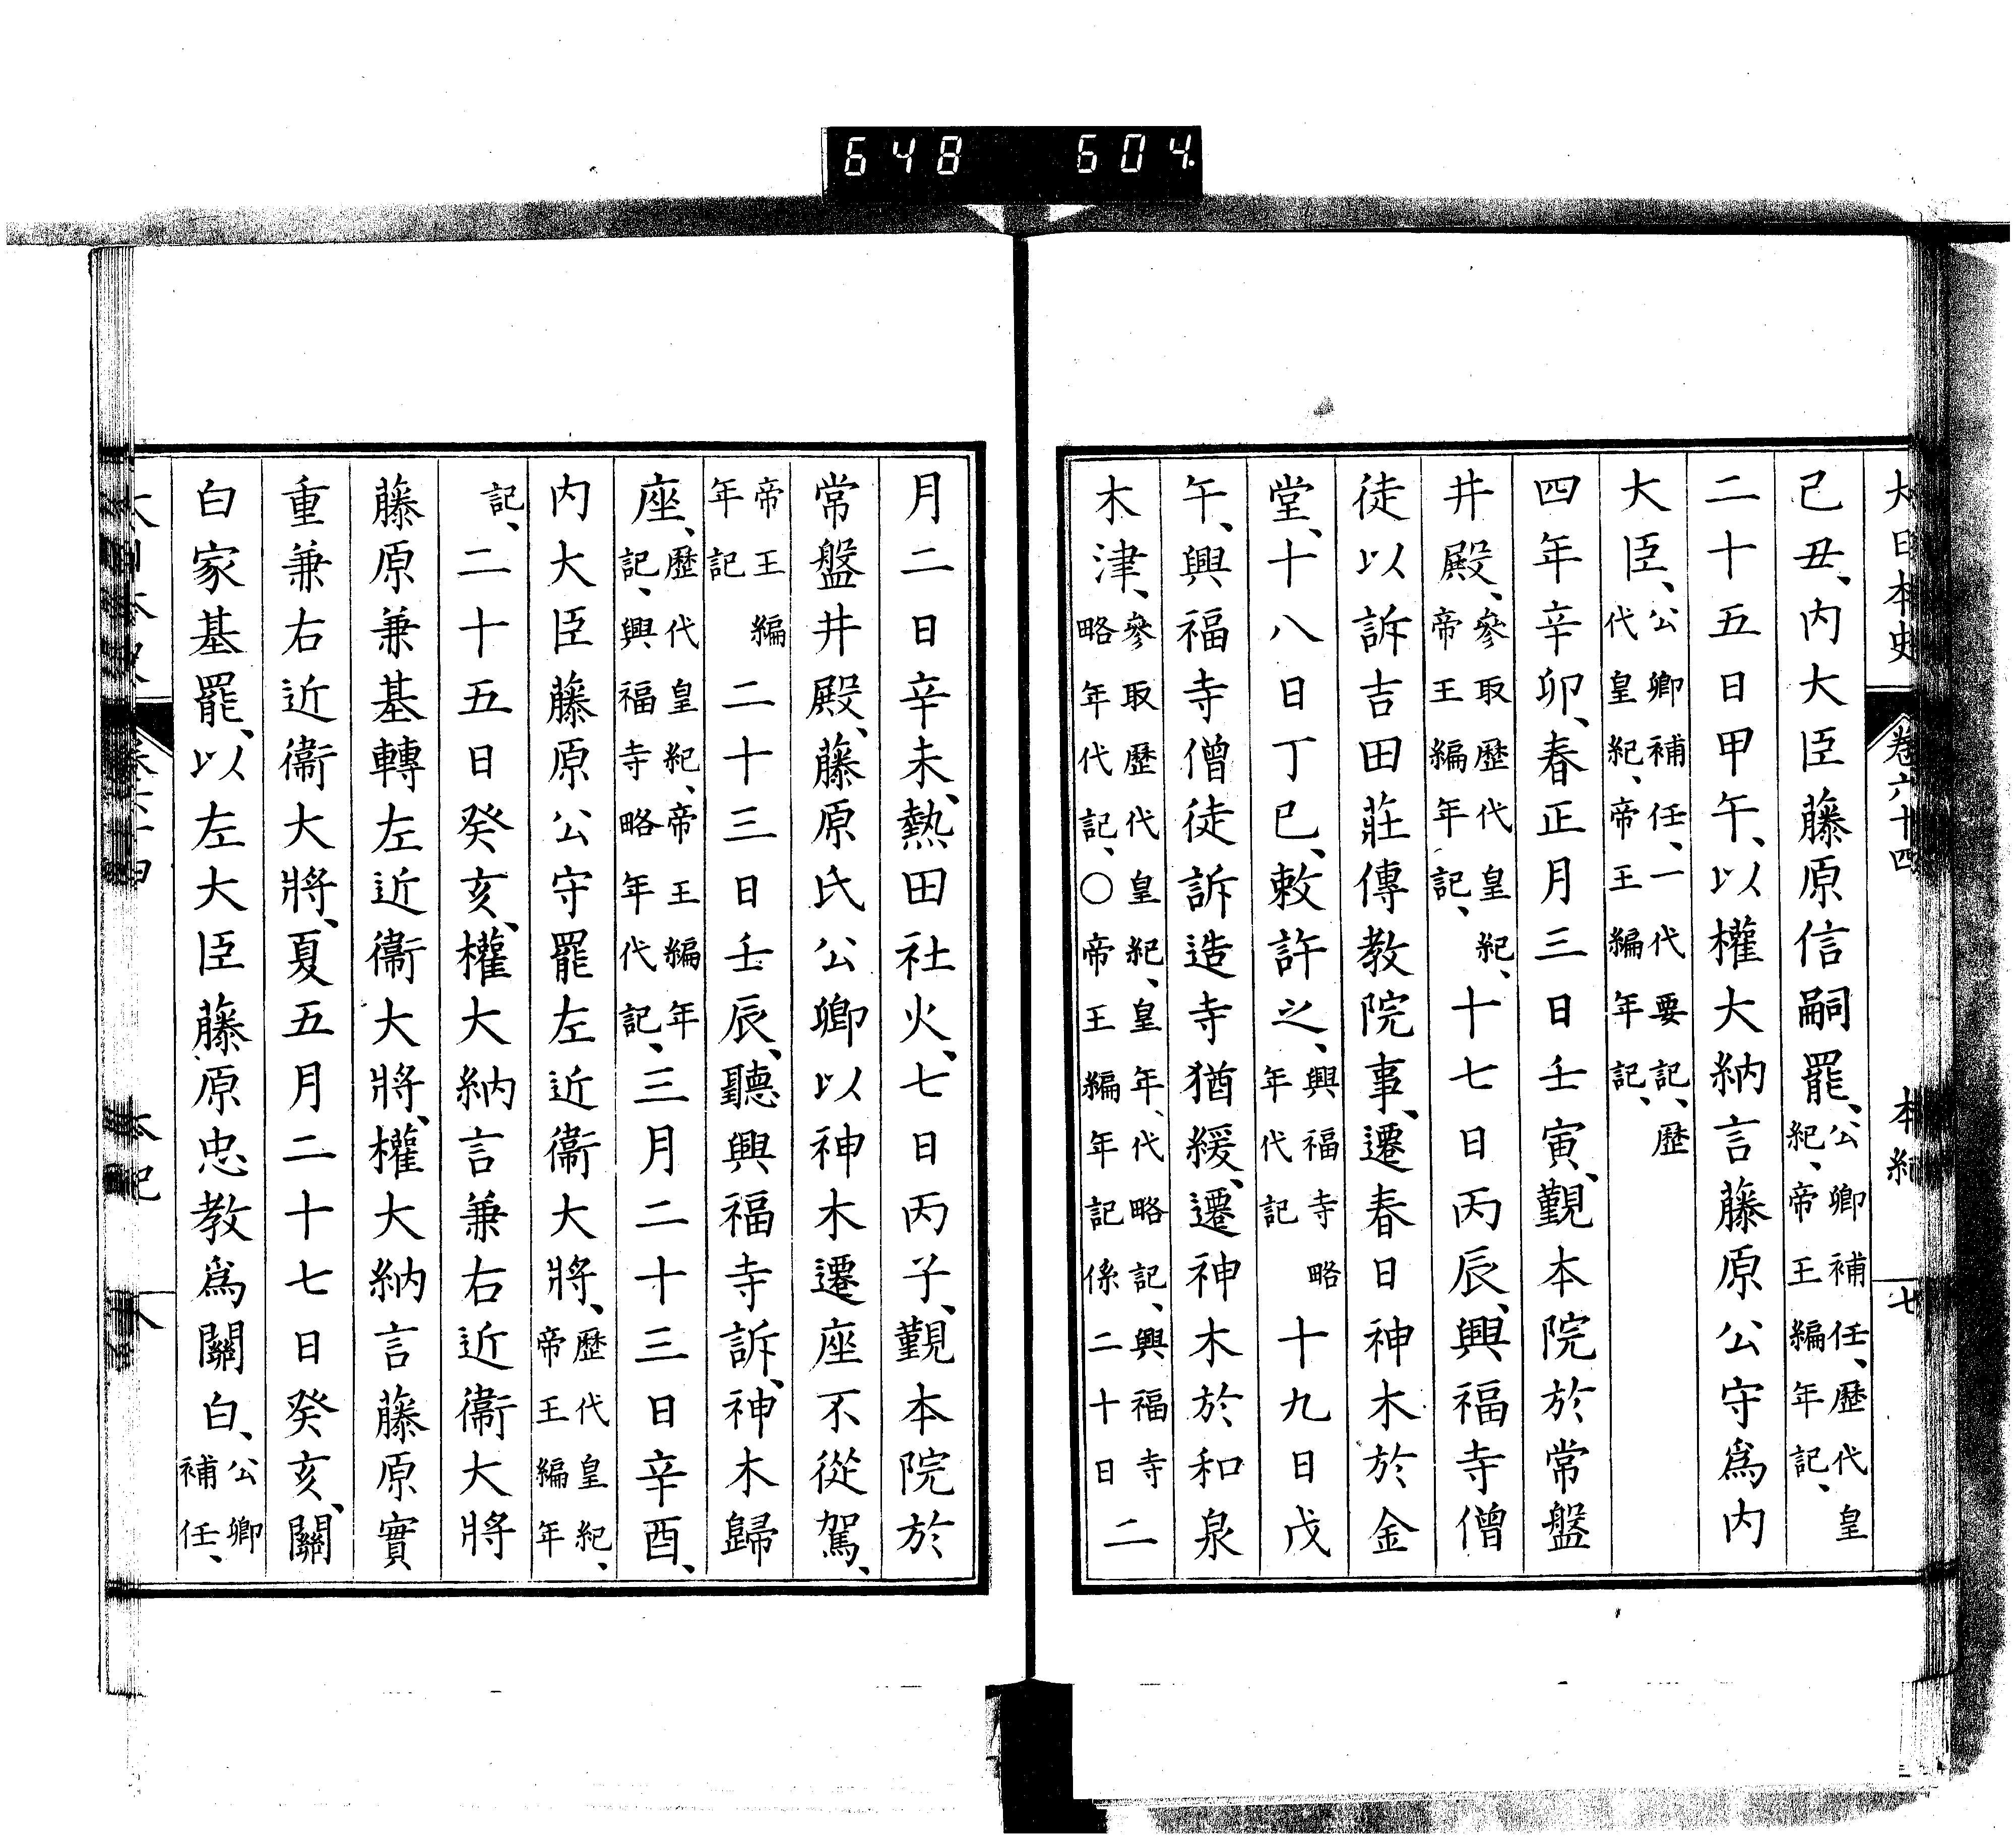 648 604
大日本史 卷六十四 本紀 七
己丑、内大臣藤原信嗣罷、公卿補任、歷代皇紀、帝王編年記、
二十五日甲午、以權大納言藤原公守爲内
大臣、公卿補任、一代要記、歷代皇紀、帝王編年記、
四年辛卯、春正月三日壬寅、覲本院於常盤
井殿、參取歷代皇紀、帝王編年記、十七日丙辰、興福寺僧
徒以訴吉田莊傳教院事、遷春日神木於金
堂、十八日丁巳、敕許之、興福寺略年代記十九日戊
午、興福寺僧徒訴造寺猶緩、遷神木於和泉
木津、參取歷代皇紀、皇年代略記、興福寺略年代記、〇帝王編年記係二十日二
月二日辛未、熱田社火、七日丙子、覲本院於
常盤井殿、藤原氏公卿以神木遷座不從駕、
帝王編年記二十三日壬辰、聽興福寺訴、神木歸
座、歷代皇紀、帝王編年記、興福寺略年代記、三月二十三日辛酉、
内大臣藤原公守罷左近衞大將、歷代皇紀、帝王編年
記、二十五日癸亥、權大納言兼右近衞大將
藤原兼基轉左近衞大將、權大納言藤原實
重兼右近衞大將、夏五月二十七日癸亥、關
白家基罷、以左大臣藤原忠教爲關白、公卿補任、
本紀 八